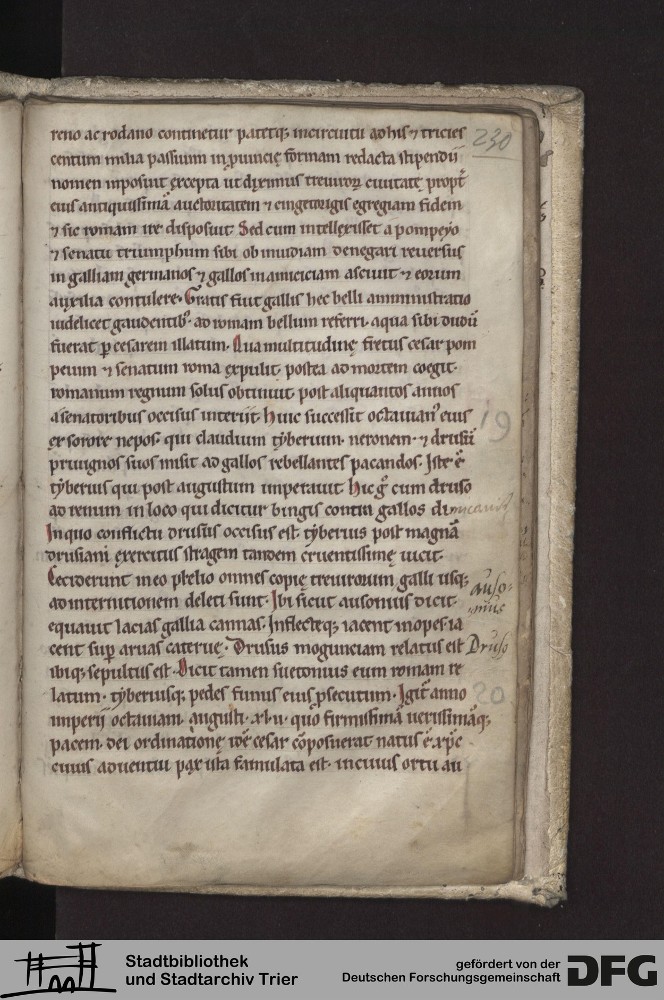 reno ac rodano continetur patetq; incircuitu adhis ⁊ tricies
centum milia passuum inprouincię formam redacta stipendii
nomen inposuit excepta ut diximus treuiroꝝ ciuitatę propt̄
eius antiquissimā auctoritatem ⁊ cingetorigis egregiam fidem
⁊ sic romam ire disposuit. Sed cum intellexisset a pompeyo
⁊ senatu triumphum sibi ob inuidiam denegari reuersus
in galliam germanos ⁊ gallos in amiciciam asciuit ⁊ eorum
auxilia contulere. Gratis fuit gallis hec belli amministratio
uidelicet gaudentib; ad romam bellum referri. a qua sibi dudū
fuerat ꝑ cesarem illatum. Qua multitudine fretus cesar pom
peium ⁊ senatum roma expulit. postea ad mortem coegit.
romanum regnum solus obtinuit. post aliquantos annos
a senatoribus occisus interiit. huic successit octauian᾽ eius
ex sorore nepos. qui claudium tyberium. neronem. ⁊ drusū
priuignos suos misit ad gallos rebellantes pacandos. Iste ē
tyberius qui post augustum imperauit. hic g̊ cum druso
ad renum in loco qui dicitur bingis contra gallos dimicauit
In quo conflictu drusus occisus est. tyberius post magnā
drusiani exercitus stragem tandem cruentissime uicit.
Ceciderunt in eo prelio omnes copię treuirorum galli usq;
ad internitionem deleti sunt. Ibi sicut ausonius dicit.
equauit lacias gallia cannas. Inflecteq; iacent inopes. ia
cent sup̄ aruas cateruę. Drusus mogunciam relatus est
ibiq; sepultus est. Dicit tamen suetonius eum romam re
latum. tyberiusq; pedes funus eius ꝓsecutum. Igit̄ anno
imperii octauiani. augusti. xl.ii. quo firmissimā uerissimāq;
pacem. dei ordinatione. idē cesar cōposuerat natus ē xp̄c
cuius aduentui pax ista famulata est. in cuius ortu au
230
19
auso-
nius
Druso
20
Stadtbibliothek
und Stadtarchiv Trier
gefördert von der
Deutschen Forschungsgemeinschaft
DFG